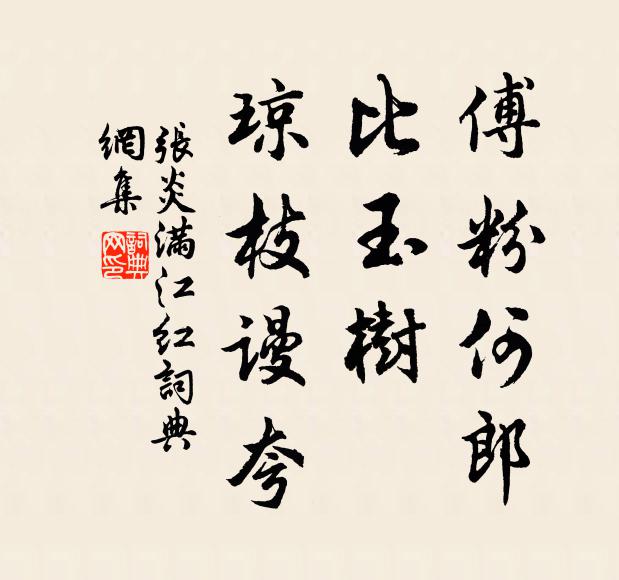 傅粉何郎
比玉樹
琼枝谩夸
張炎满江红詞典
網集
詞典
网印